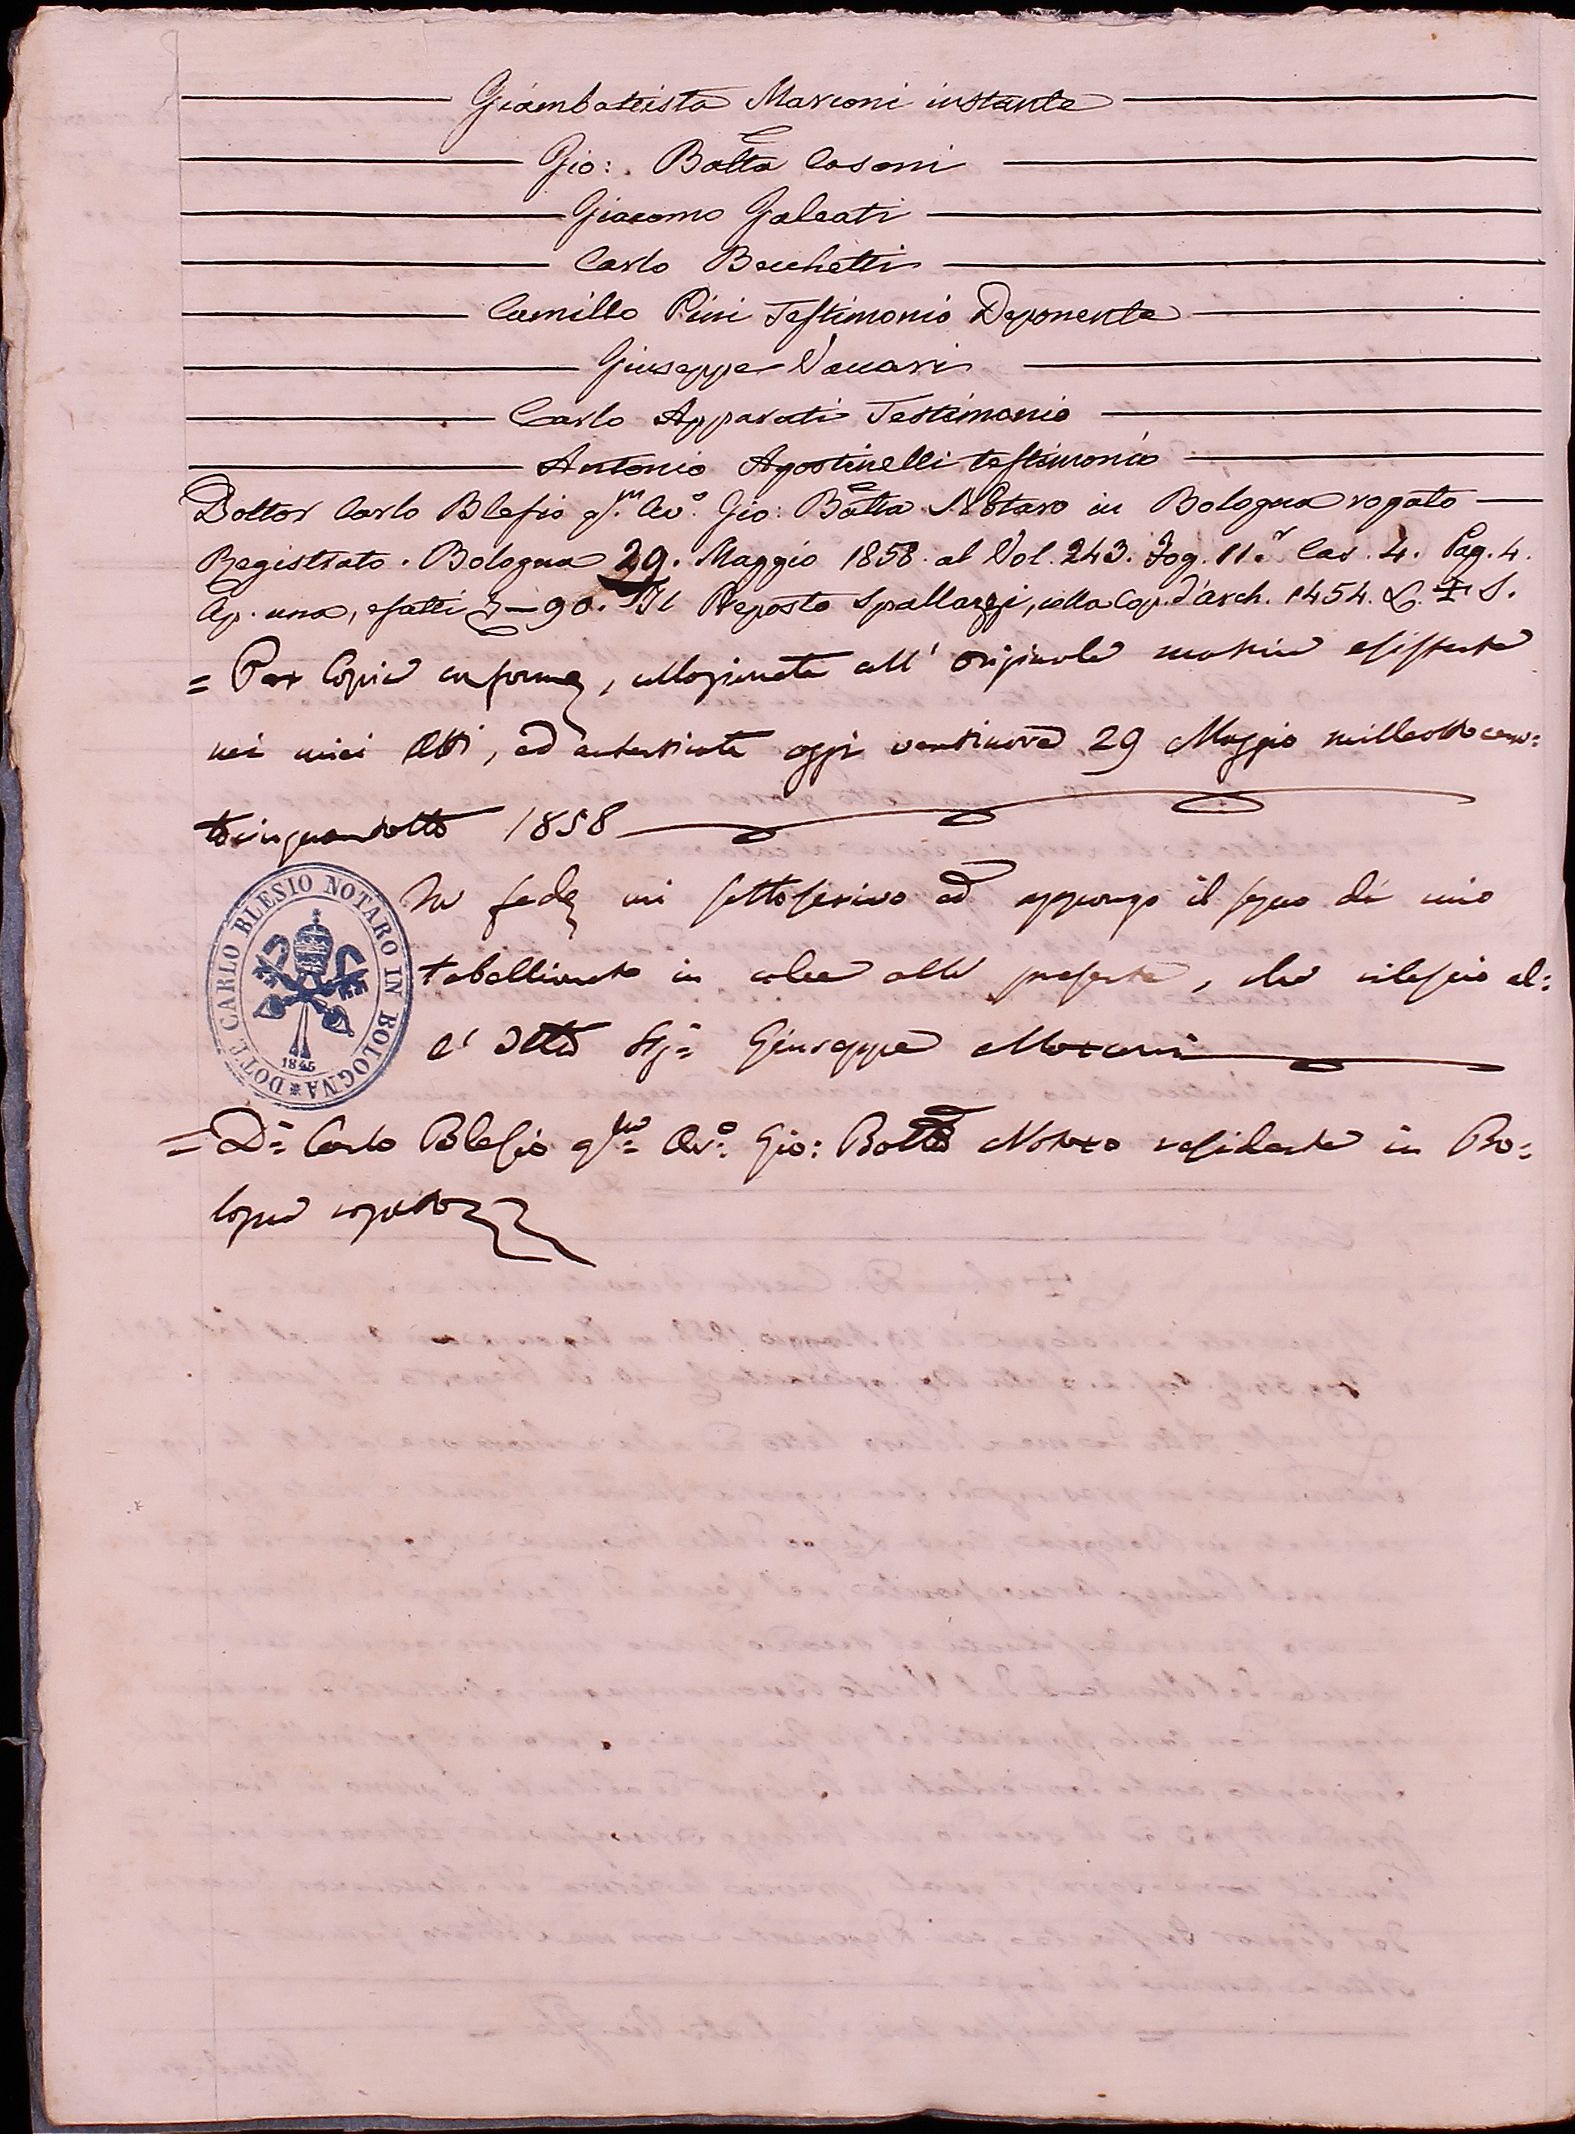 Giambattista Marconi instante
Gio: Batta Casoni
Giacomo Galeati
Carlo Becchetti
Camillo Pini Testimonio Deponente
Giuseppe Vaccari
Carlo Apparuti Testimonio
Antonio Agostinelli testimonio
Dottor Carlo Blesio q.m Av.o Gio: Batta Notaro in Bologna rogato
Registrato. Bologna 29. Maggio 1858. al Vol. 243. Fog. 11. Cas. 4. Pag. 4.
Ap. una, esatti 90. Il Preposto Spallazzi, colla Cop. d'arch. 1454. L. + S.
= Per Copia conforme, collazionata all' originale matrice esistente
nei miei Atti, ed autenticata oggi ventinove 29 Maggio milleottocen=
tocinquantotto 1858
In fede mi sottoscrivo ed appongo il segno di mio
tabellionato in calce alla presente, che rilascio al=
l' detto Sig.r Giuseppe Marconi
= D.r Carlo Blesio q.m Av.o Gio: Batta Notaro residente in Bo=
logna rogato
DOTT.E CARLO BLESIO NOTARO IN BOLOGNA
1845